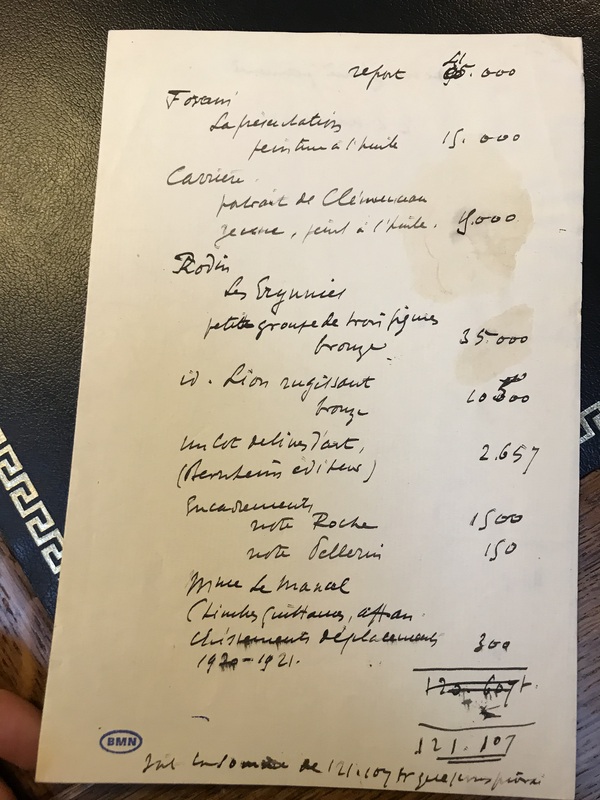 report 41.000
Forain
La présentation
peinture à l'huile 15.000
Carrière
portrait de Clémenceau
jeune, peint à l'huile. 15.000
Rodin
Les Erynnies
petit groupe de trois figures
bronze 35.000
id. Lion rugissant
bronze 10.500
un lot de livres d'art, 2.657
(Bernheim éditeur)
Encadrements
note Roche 1500
note Pellerin 150
Mme Le Mancel
(timbres quittances, affran-
chissements déplacements 300
1920-1921.
120.607 f.
121.107
BMN
la somme de 121.107 fr que